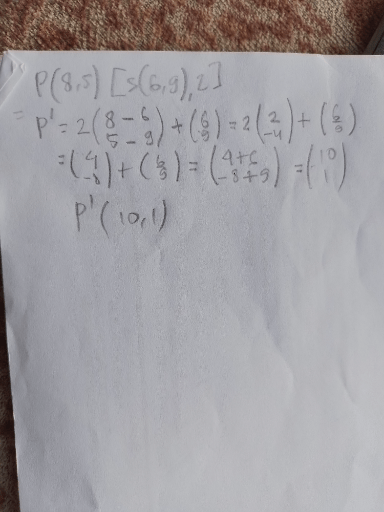 P(8,5) [S(6,9),2]
= P' = 2(8-6 5-9) + (6 9) = 2(2 -4) + (6 9)
= (4 -8) + (6 9) = (4+6 -8+9) = (10 1)
P'(10,1)